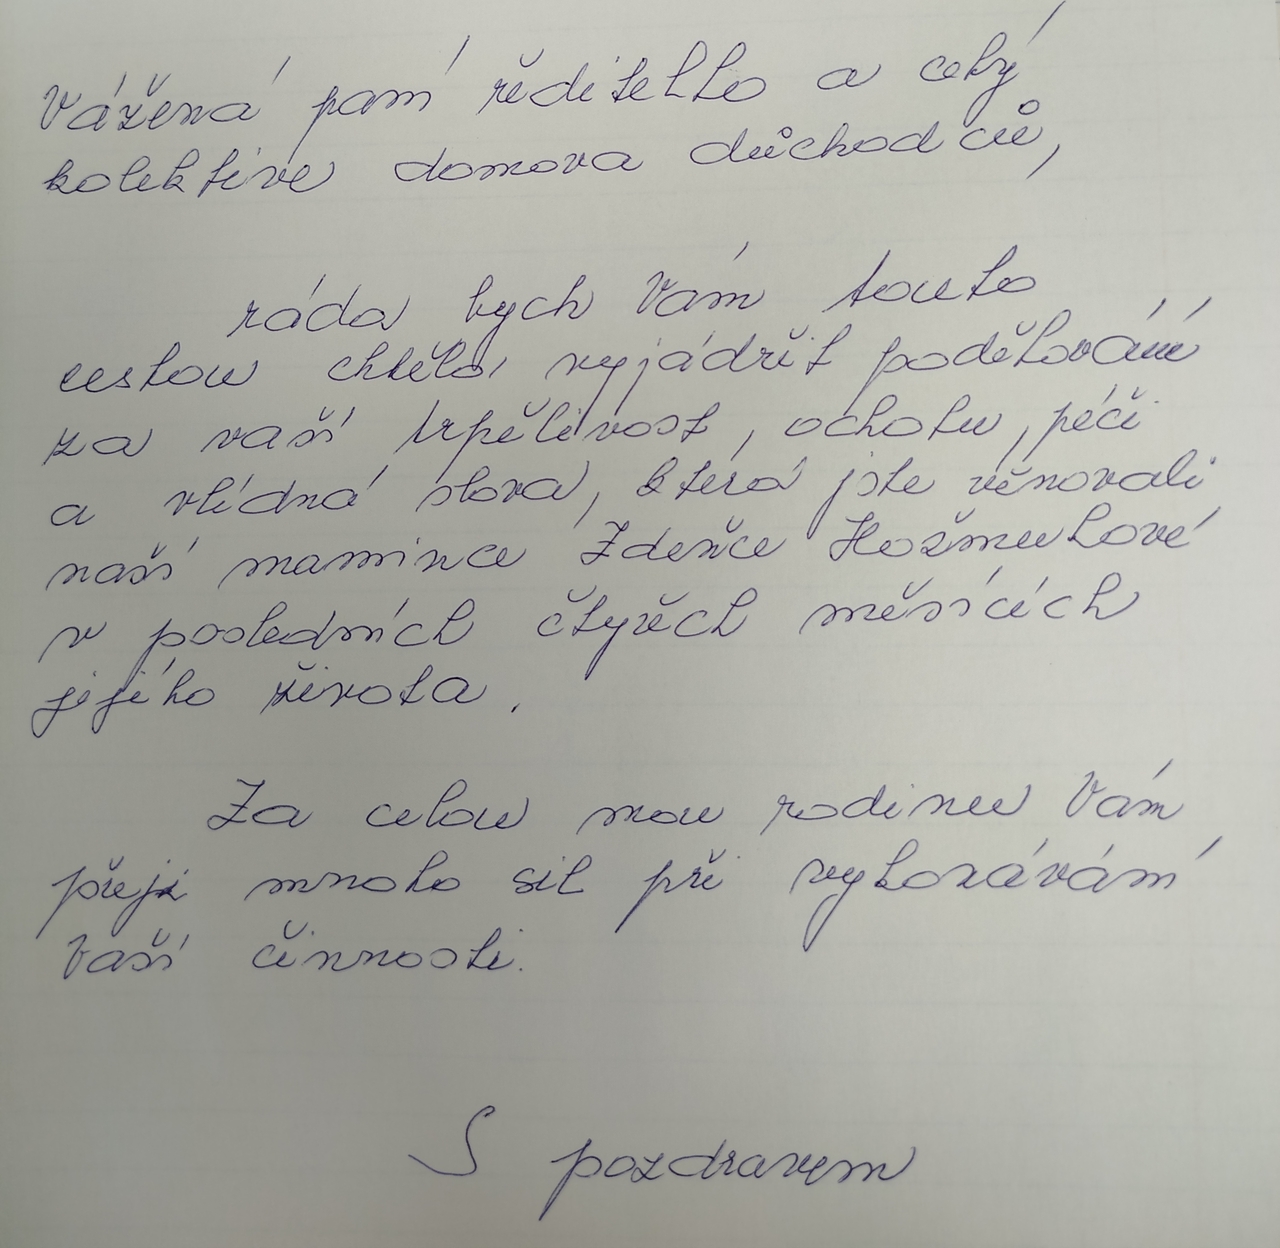 Vážená paní ředitelko a celý
kolektive domova důchodců,
ráda bych Vám touto
cestou chtěla vyjádřit poděkování
za vaší trpělivost, ochotu, péči
a vlídná slova, která jste věnovali
naší mamince Zdeňce
v posledních čtyřech měsících
jejího života.
Za celou mou rodinu Vám
přeji mnoho sil při vykonávání
Vaší činnosti.
S pozdravem